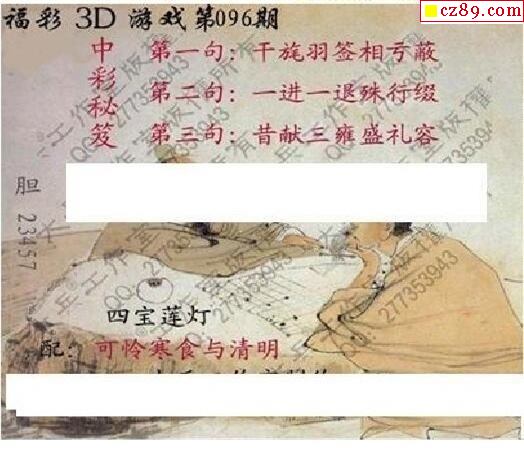 cz89.com
福彩 3D 游戏第096期
中彩秘笈
第一句：干旄羽签相亏蔽
第二句：一进一退殊行缀
第三句：昔献三雍盛礼容
胆 23457
四宝莲灯
配：可怜寒食与清明
工作室版权所有
QQ：277353943